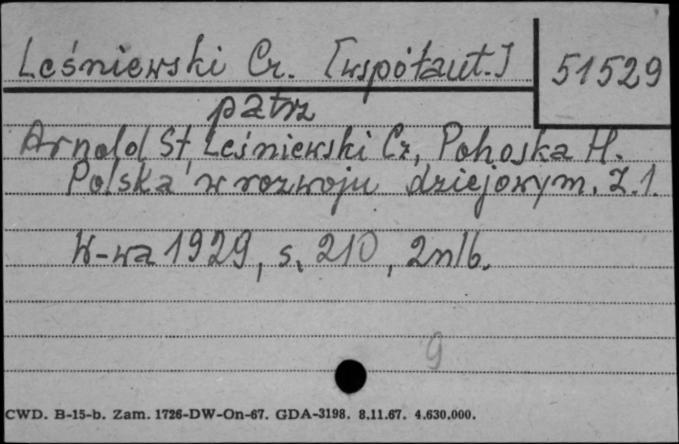 Leśniewski Cz. [współaut.]
51529
patrz
Arnold St, Leśniewski Cz, Pohoska H.
Polska w rozwoju dziejowym. Z. 1.
W-wa 1929, s. 210, 2nlb.
9
CWD. B-15-b. Zam. 1726-DW-On-67. GDA-3198. 8.11.67. 4.630.000.